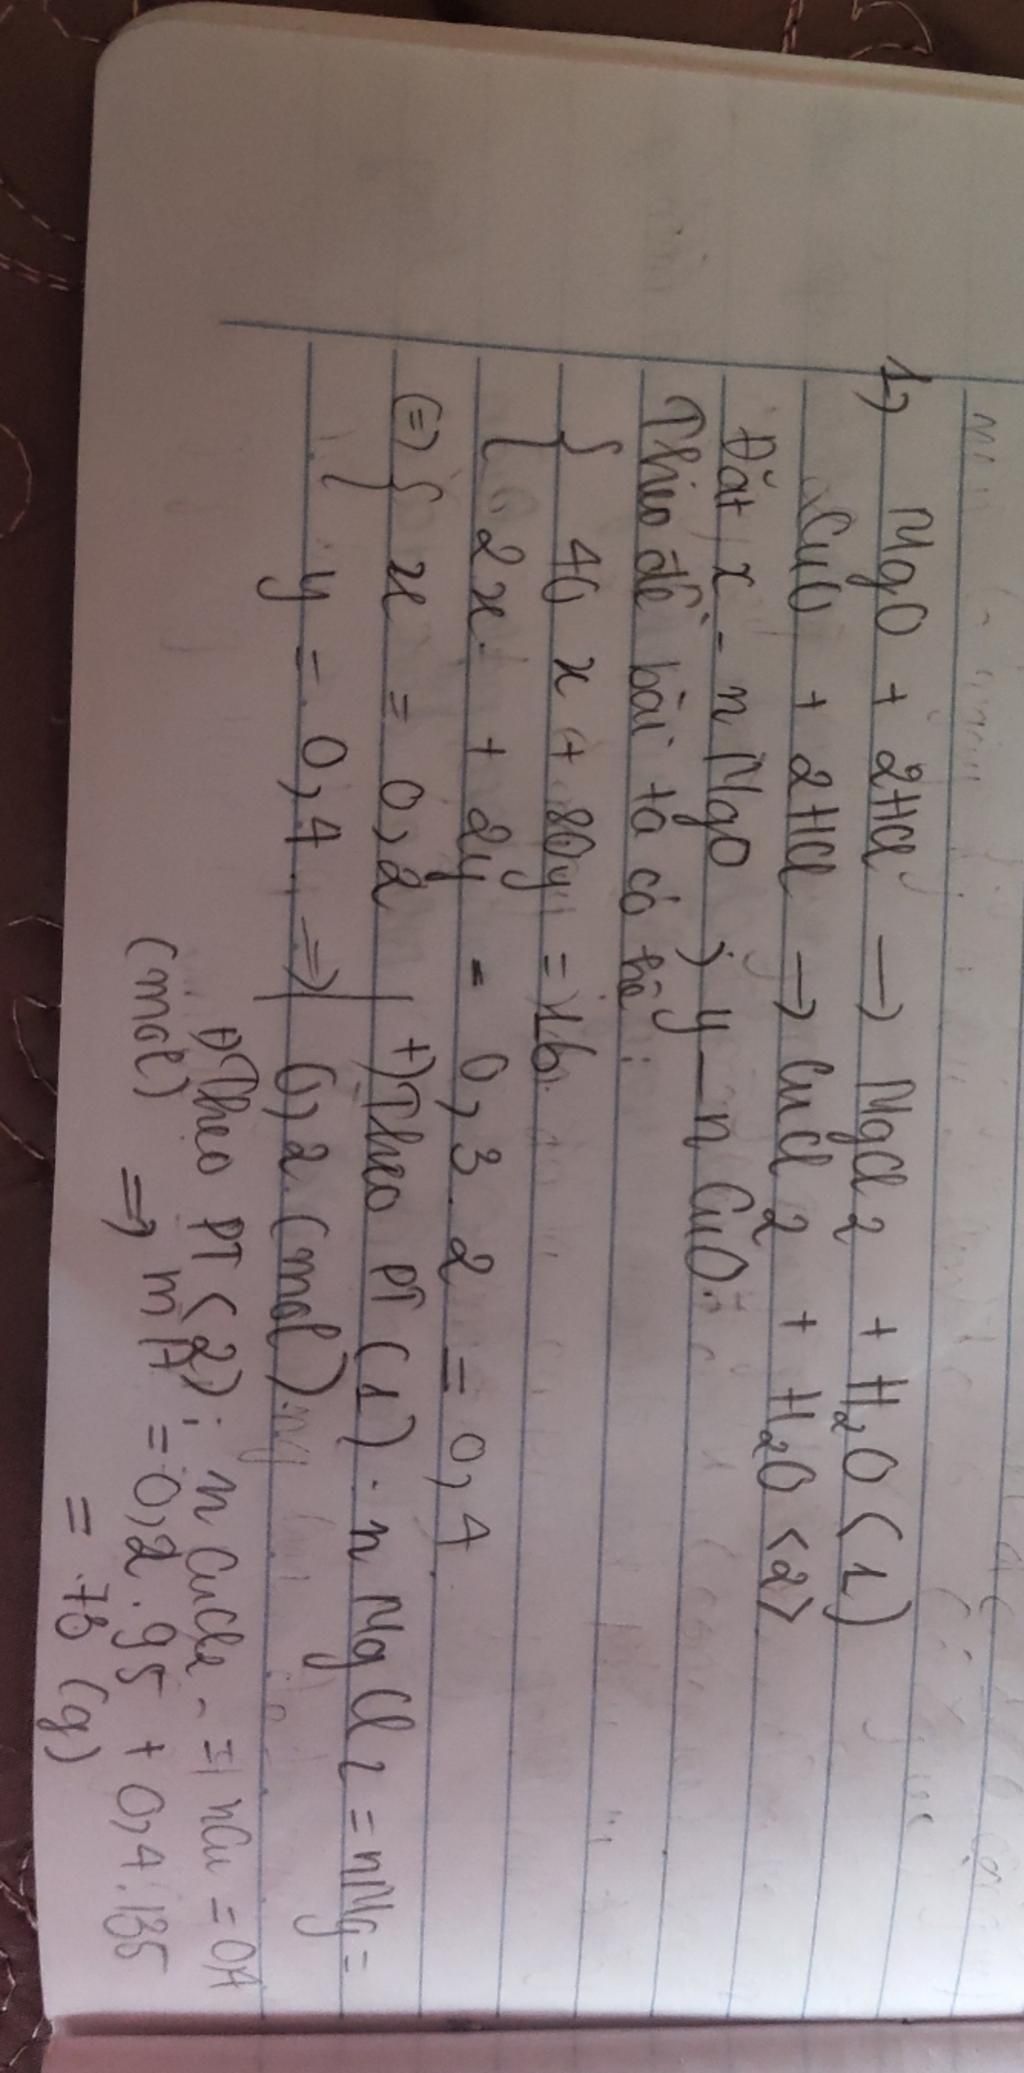 1) MgO + 2HCl → MgCl2 + H2O (1)
CuO + 2HCl → CuCl2 + H2O <2>
Đặt x - nMgO ; y - nCuO.
Theo đề bài ta có hệ:
{ 40x + 80y = 16
2x + 2y = 0,3.2 = 0,4
(=) { x = 0,2
y = 0,4 =>
+) Theo PT (1). nMgCl2 = nMg =
0,2 (mol).
+) Theo PT <2>: nCuCl2 = nCu = 0,4
(mol) => mA = 0,2.95 + 0,4.135
= 78 (g)